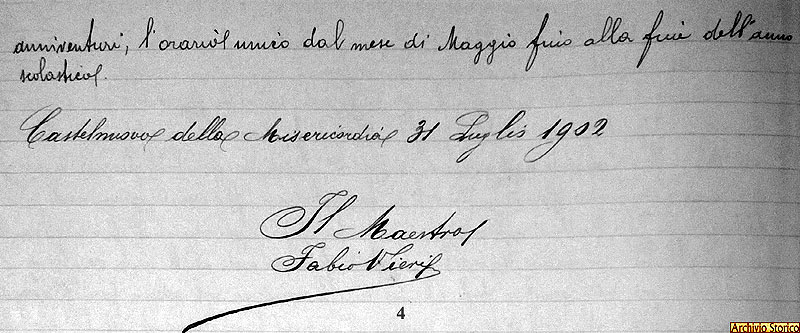 anni venturi, l'orario unico dal mese di Maggio fino alla fine dell'anno
scolastico.
Castelnuovo della Misericordia 31 Luglio 1902
Il Maestro
Fabio Vieri
4
Archivio Storico